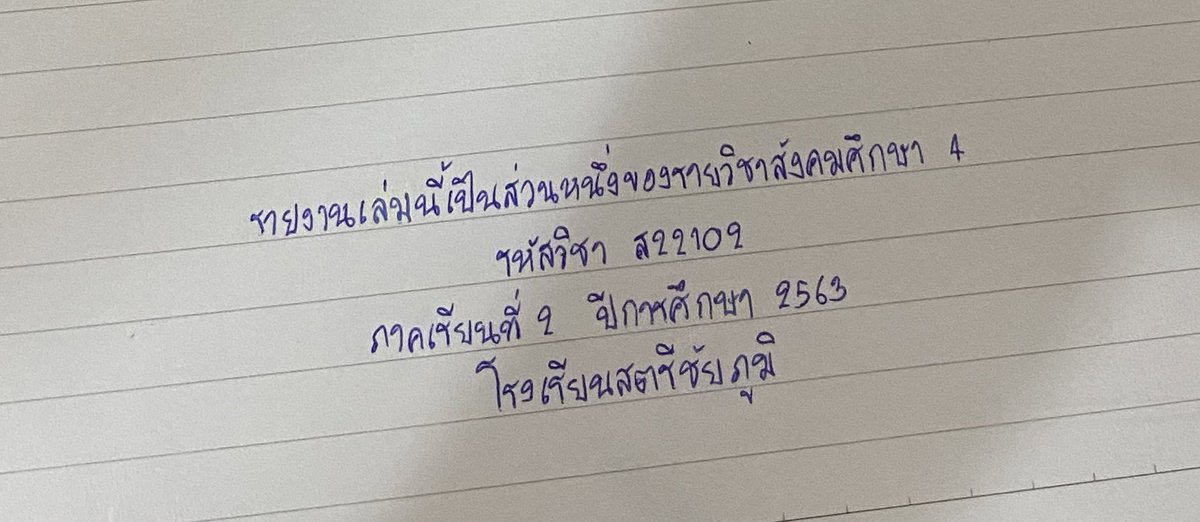 รายงานเล่มนี้เป็นส่วนหนึ่งของรายวิชาสังคมศึกษา 4
รหัสวิชา ส22102
ภาคเรียนที่ 2 ปีการศึกษา 2563
โรงเรียนสตรีชัยภูมิ